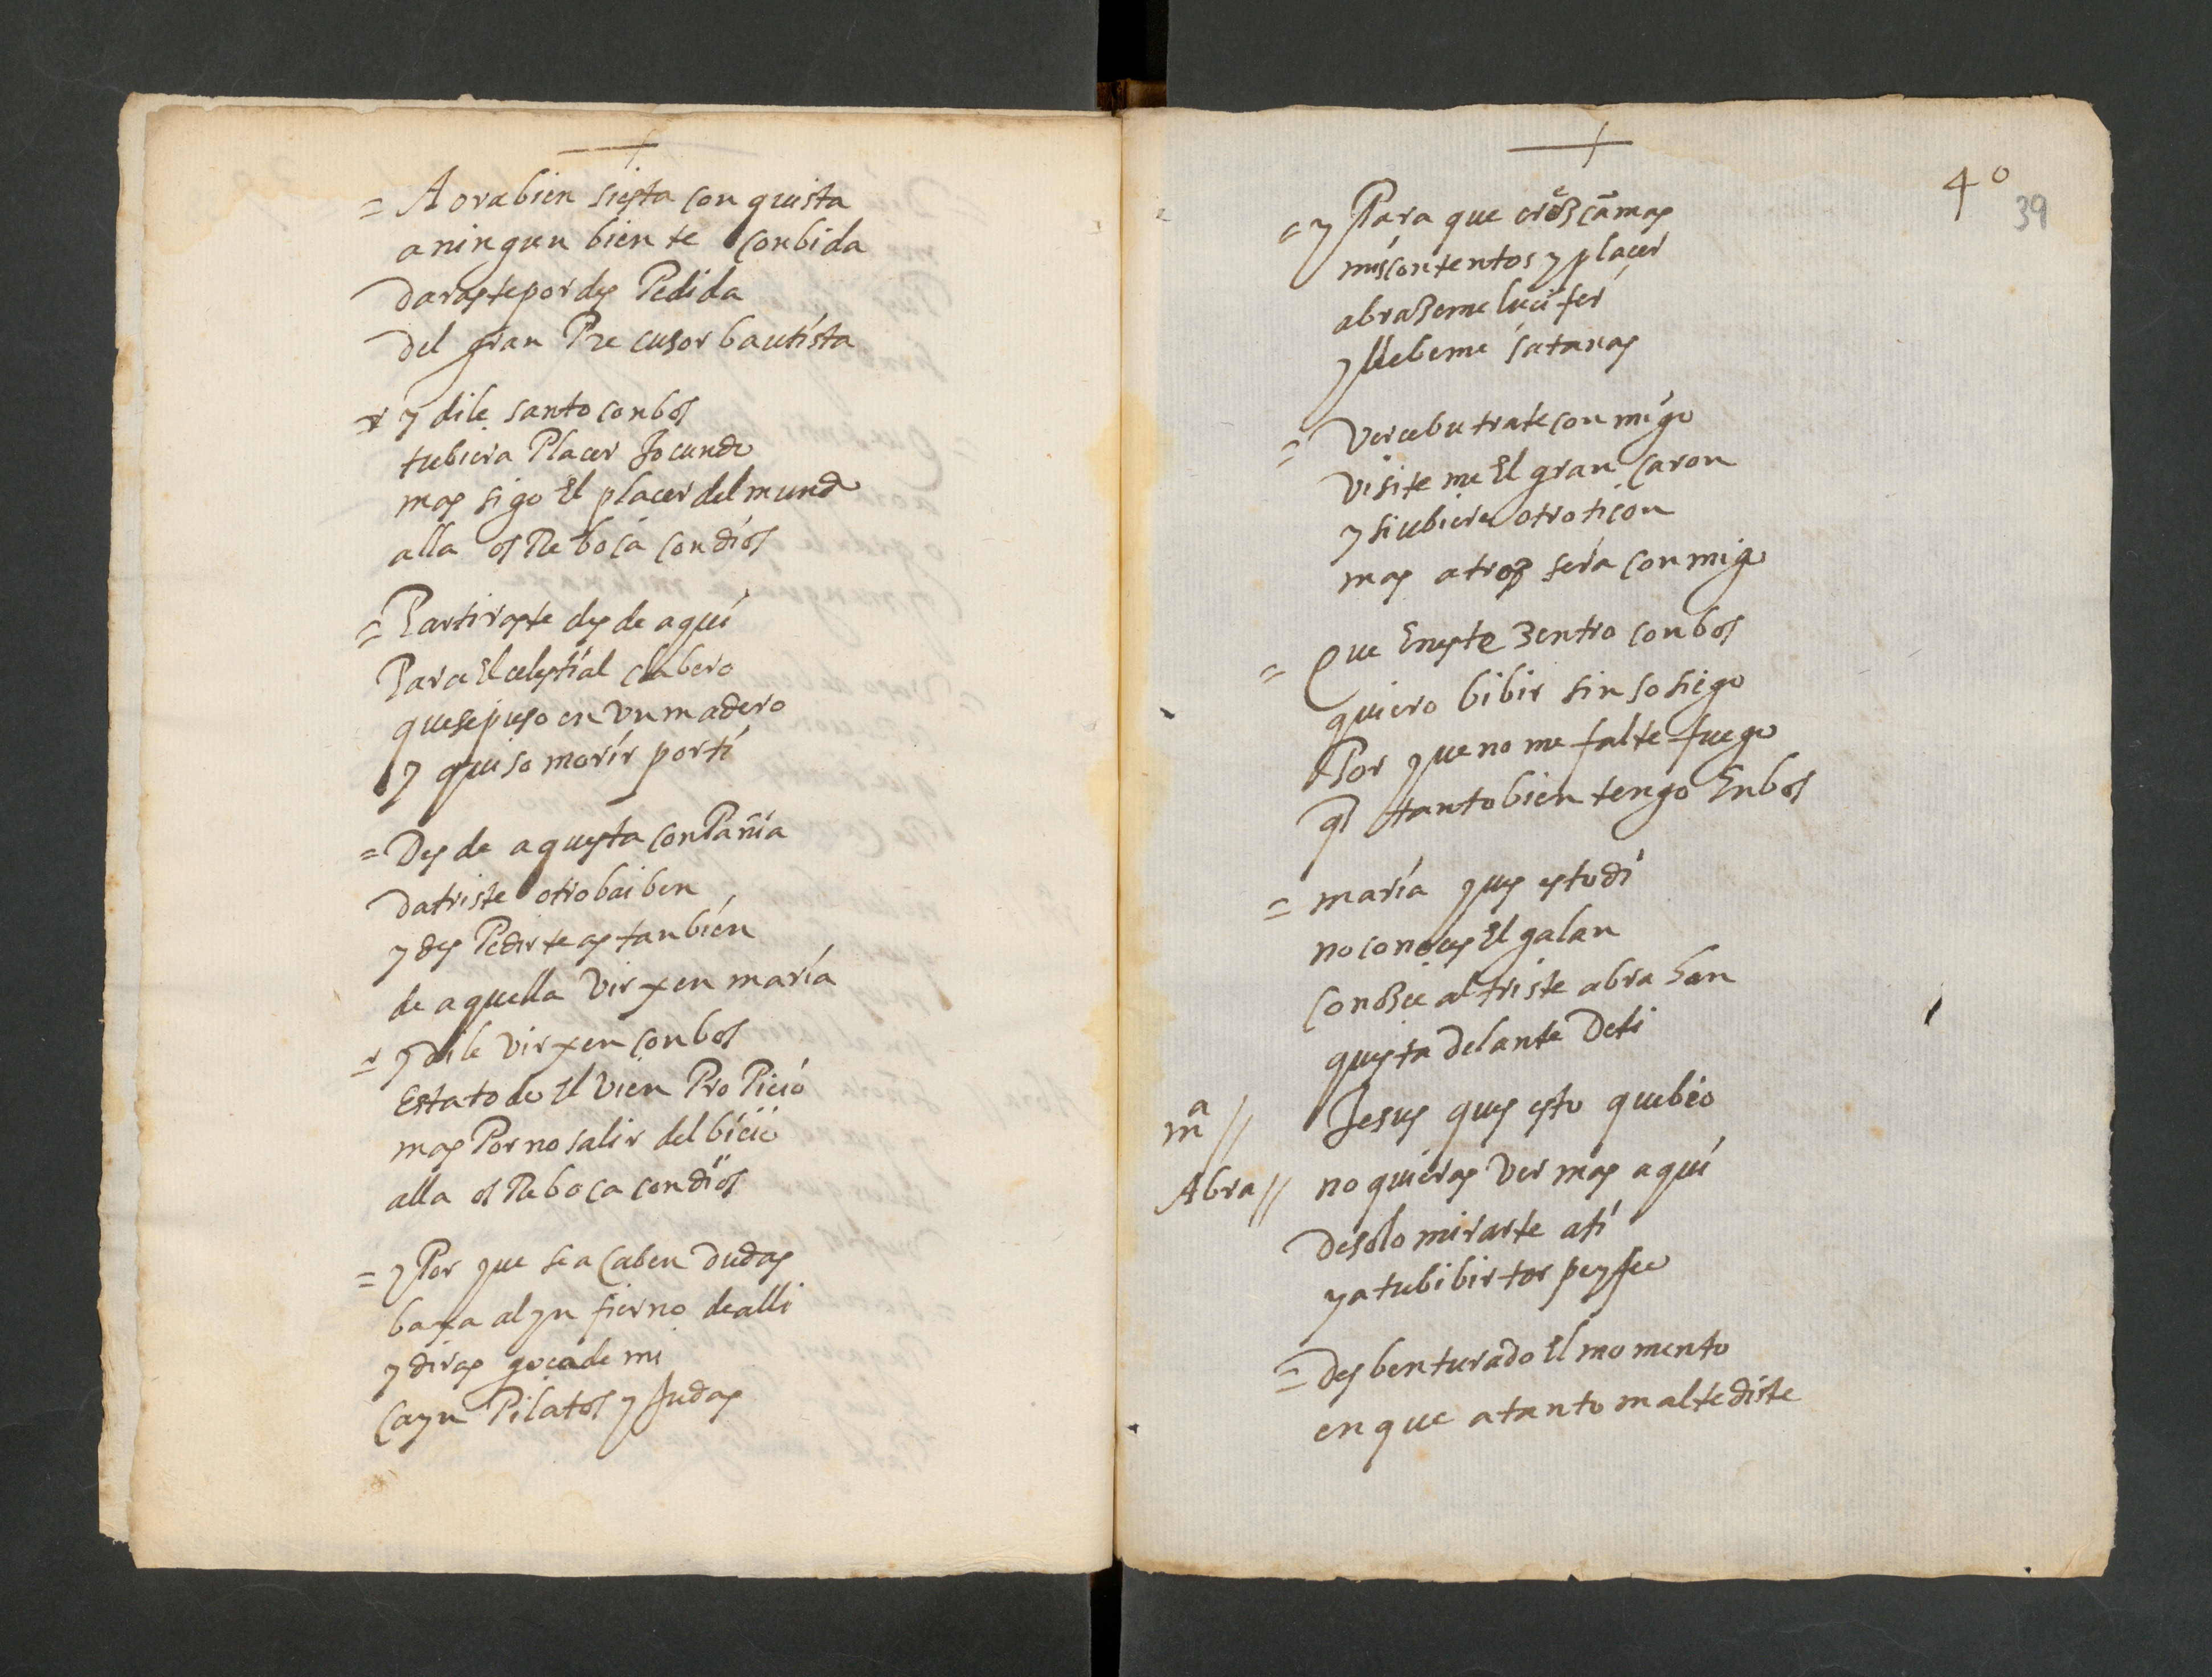 = Aora bien si esta con quista
a ningun bien te conbida
daraste por des Pedida
del gran Precusor bautista
= y dile santo con bos
tubiera Placer Jocundo
mas sigo El placer del mundo
alla os Reboça con dios
= Partiraste desde aqui
Para El celestial clabero
que se puso en vn madero
y quiso morir por ti
= Desde aquesta conPañia
da triste otro baiben
y des Pedirte as tanbien
de aquella virxen maria
= y dile virxen con bos
esta todo El vien ProPicio
mas Por no salir del bicio
alla os Reboca con dios
= y Por que se acaben dudas
baxa al ynfierno de alli
y diras goça de mi
Cayn Pilatos y Judas
4º
39
= y Para que crezcā mas
mis contentos y plaçer
abrazeme lucifer
y llebeme satanas
= Vercebu trate con migo
visite me El gran Caron
y si ubiere otro tiçon
mas atroz sera con migo
= Que En este zentro con bos
quiero bibir sin sosiego
Por que no me falte fuego
q̄ tanto bien tengo En bos
= maria ques esto di
no conoces El galan
Conoze al triste abra han
questa delante De ti
mª // Jesus ques esto que beo
Abra // no quieras ver mas aqui
de solo mirarte a ti
y a tu bibir torpe y feo
= Desbenturado El momento
en que a tanto mal te diste